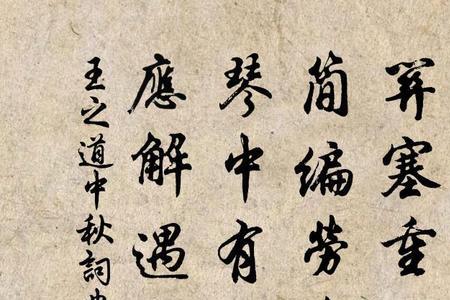 關塞重
簡編勞
琴中有
應解遇
王之道中秋詞